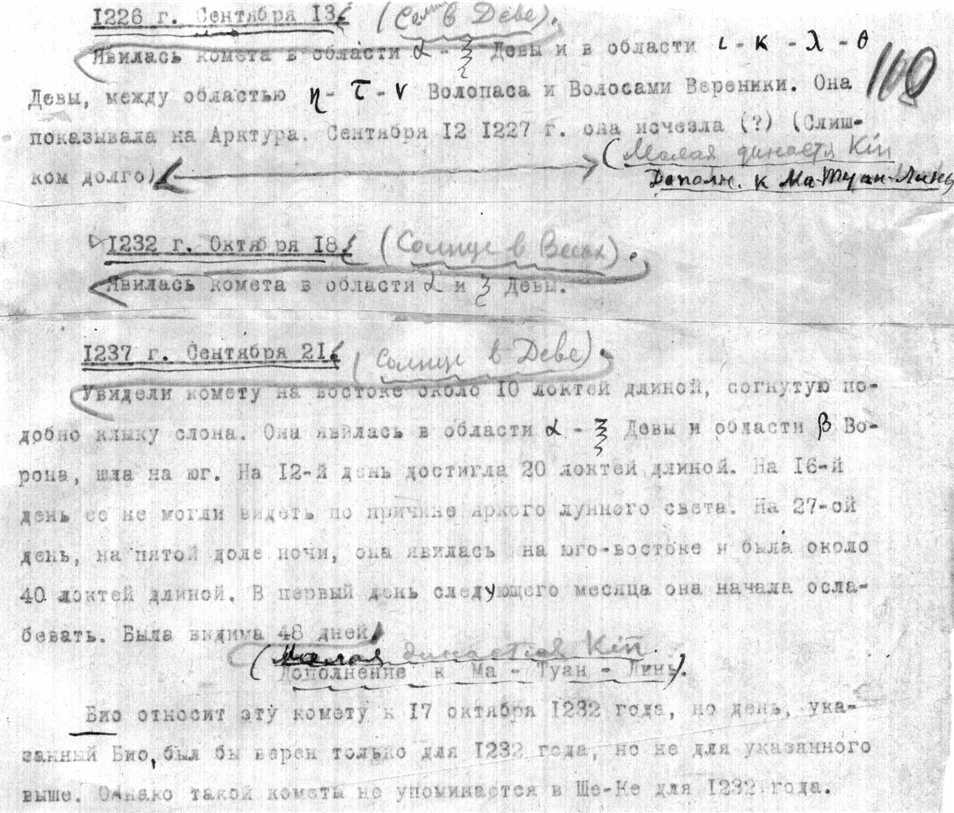 1226 г. Сентября 13. (Солнце в Деве).
Явилась комета в области α - ξ Девы и в области ι - κ - λ - θ
Девы, между областью η - τ - ν Волопаса и Волосами Вереники. Она
109
показывала на Арктура. Сентября 12 1227 г. она исчезла (?) (Слиш-
ком долго)
(Малая династя Kin
Дополн. к Ма-Туан-Линь
1232 г. Октября 18. (Солнце в Весах).
Явилась комета в области α и ξ Девы.
1237 г. Сентября 21. (Солнце в Деве).
Увидели комету на востоке около 10 локтей длиной, согнутую по-
добно клыку слона. Она явилась в области α - ξ Девы и области β Во-
рона, шла на юг. На 12-й день достигла 20 локтей длиной. На 16-й
день ее не могли видеть по причине яркого лунного света. На 27-ой
день, на пятой доле ночи, она явилась на юго-востоке и была около
40 локтей длиной. В первый день следующего месяца она начала осла-
бевать. Была видима 48 дней.
(Малая династия Kin.
Дополнение к Ма - Туан - Линь).
Био относит эту комету к 17 октября 1232 года, но день, ука-
занный Био, был бы верен только для 1232 года, но не для указанного
выше. Однако такой кометы не упоминается в Ше-Ке для 1232 года.